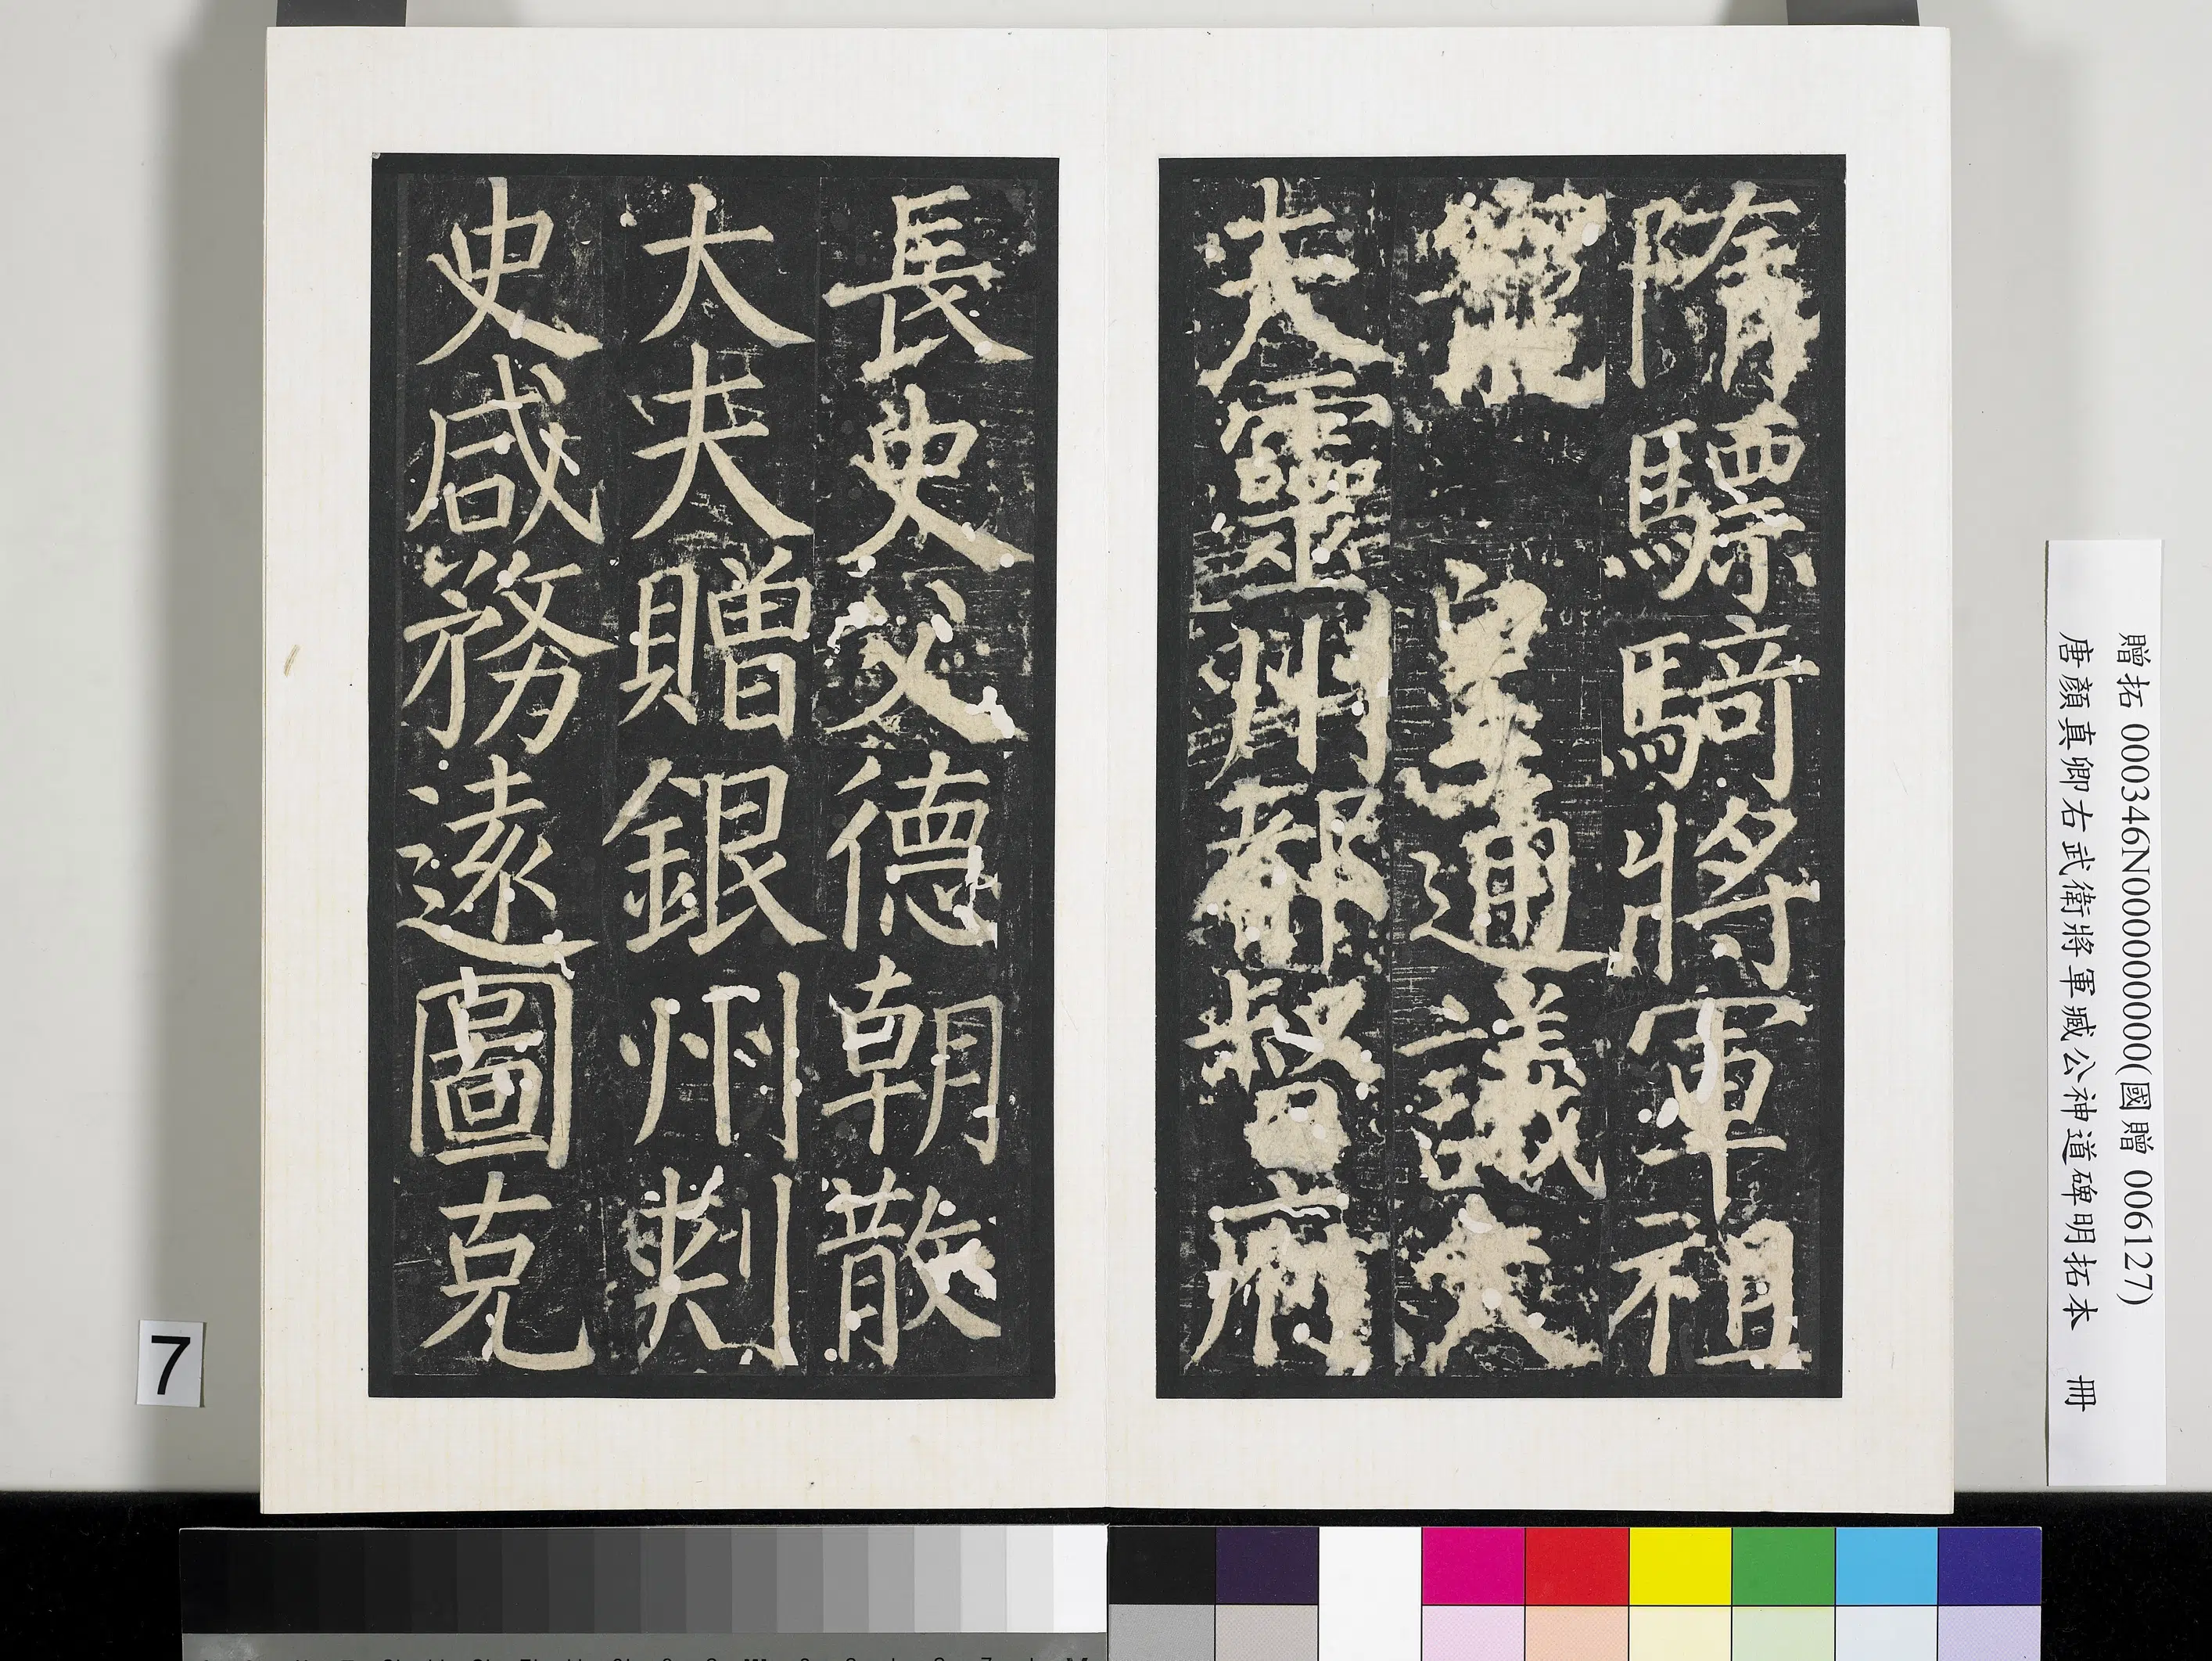 隋驃騎將軍祖
寵 皇通議大
夫靈州都督府
長史父德朝散
大夫贈銀州刺
史咸務遠圖克
贈拓 000346N000000000(國贈 006127)
唐顏真卿右武衛將軍臧公神道碑明拓本 冊
7